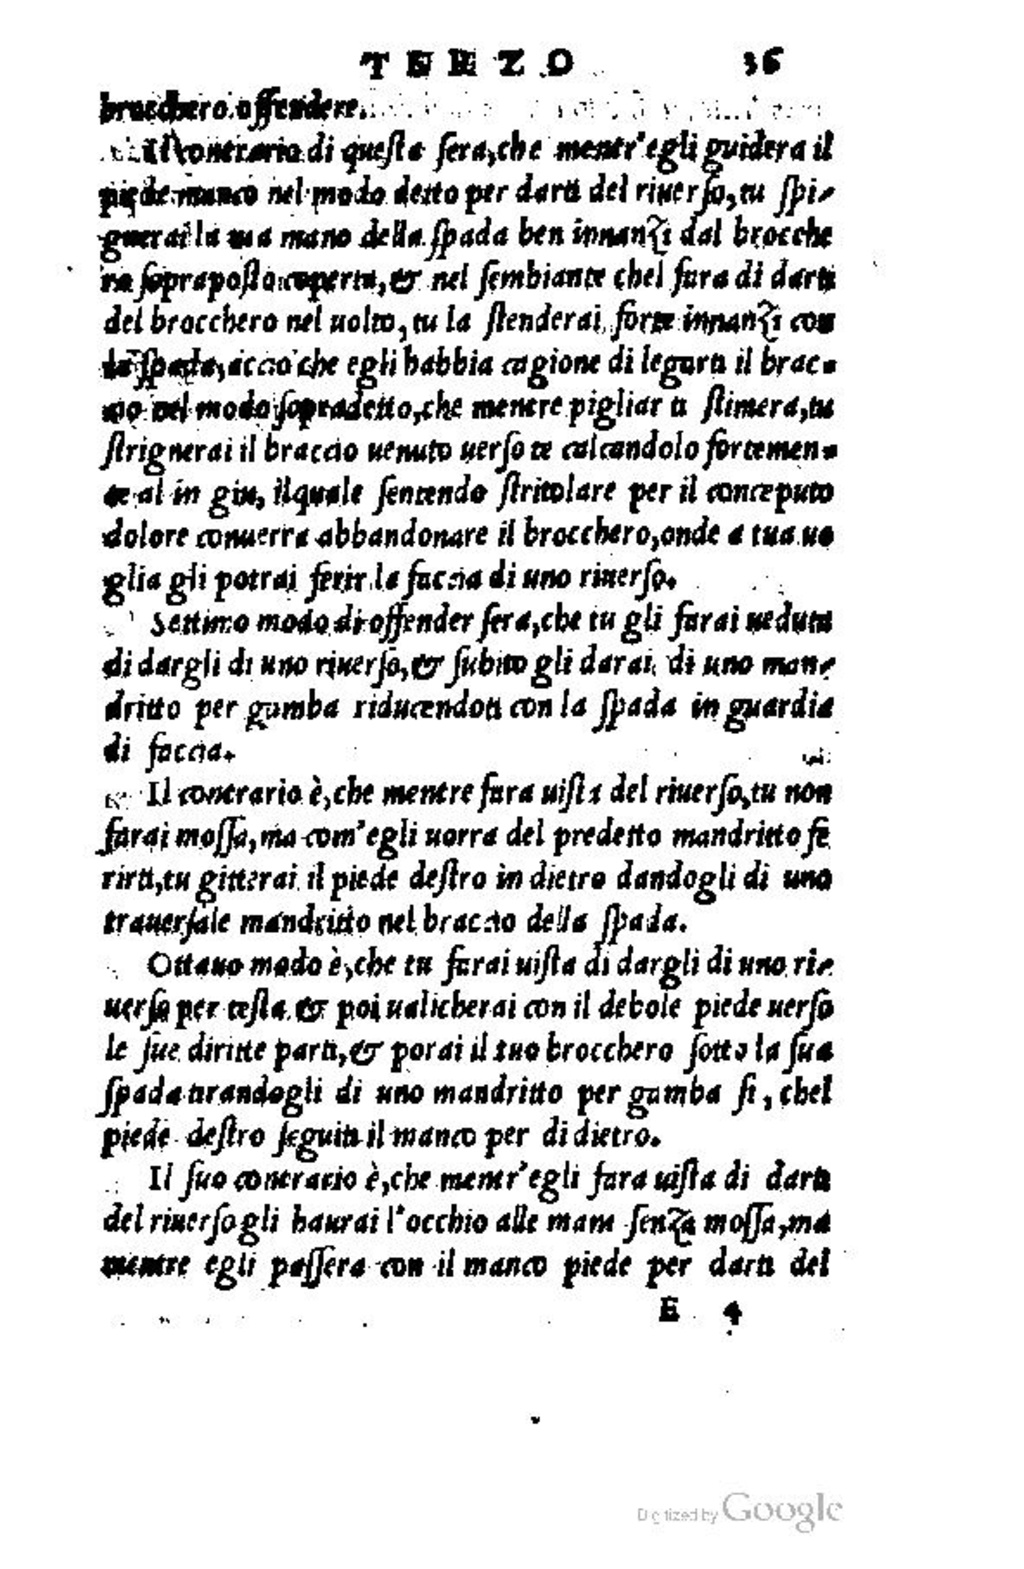 TERZO 36
brocchero offendere.
Il contrario di questa sera, che mentr'egli guidera il
piede manco nel modo detto per darti del riuerso, tu spi-
gnerai la tua mano della spada ben innanzi dal brocche
ro sopraposto coperta, & nel sembiante chel fara di darti
del brocchero nel uolto, tu la stenderai forte innanzi con
la spada, accio che egli habbia cagione di legarti il brac-
cio nel modo sopradetto, che mentre pigliarti stimera, tu
strignerai il braccio uenuto uerso te calcandolo fortemen-
te al in giu, ilquale sentendo stritolare per il conceputo
dolore conuerra abbandonare il brocchero, onde a tua uo
glia gli potrai ferir la faccia di uno riuerso.
Settimo modo di offender sera, che tu gli farai ueduta
di dargli di uno riuerso, & subito gli darai di uno man-
dritto per gamba riducendoti con la spada in guardia
di faccia.
Il contrario è, che mentre fara uista del riuerso, tu non
farai mossa, ma com'egli uorra del predetto mandritto fe
rirti, tu gitterai il piede destro in dietro dandogli di uno
trauersale mandritto nel braccio della spada.
Ottauo modo è, che tu farai uista di dargli di uno ri-
uerso per testa & poi ualicherai con il debole piede uerso
le sue diritte parti, & porai il tuo brocchero sotto la sua
spada tirandogli di uno mandritto per gamba si, chel
piede destro seguiti il manco per di dietro.
Il suo contrario è, che mentr'egli fara uista di darti
del riuerso gli haurai l'occhio alle mani senza mossa, ma
mentre egli passera con il manco piede per darti del
E 4
Digitized by Google